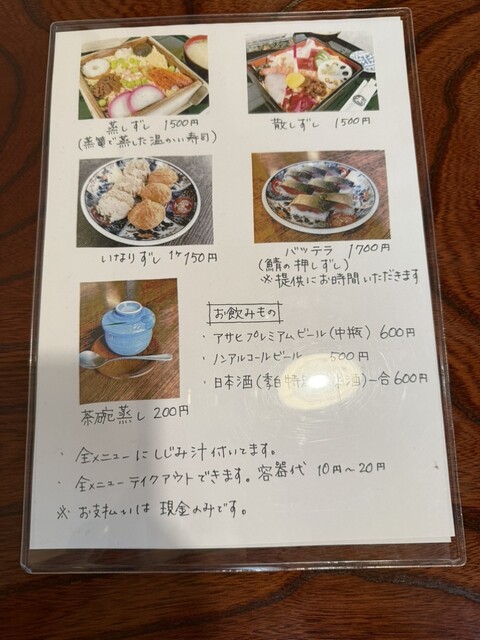 蒸しずし 1500円
(蒸篭で蒸した温かい寿司)
散しずし 1500円
いなりずし 1ケ150円
バッテラ 1700円
(鯖の押しずし)
※提供にお時間いただきます
茶碗蒸し 200円
お飲みもの
・アサヒプレミアムビール(中瓶) 600円
・ノンアルコールビール 500円
・日本酒(李白特別 酒)一合600円
・全メニューにしじみ汁付いてます。
・全メニューテイクアウトできます。容器代 10円〜20円
※お支払いは現金のみです。